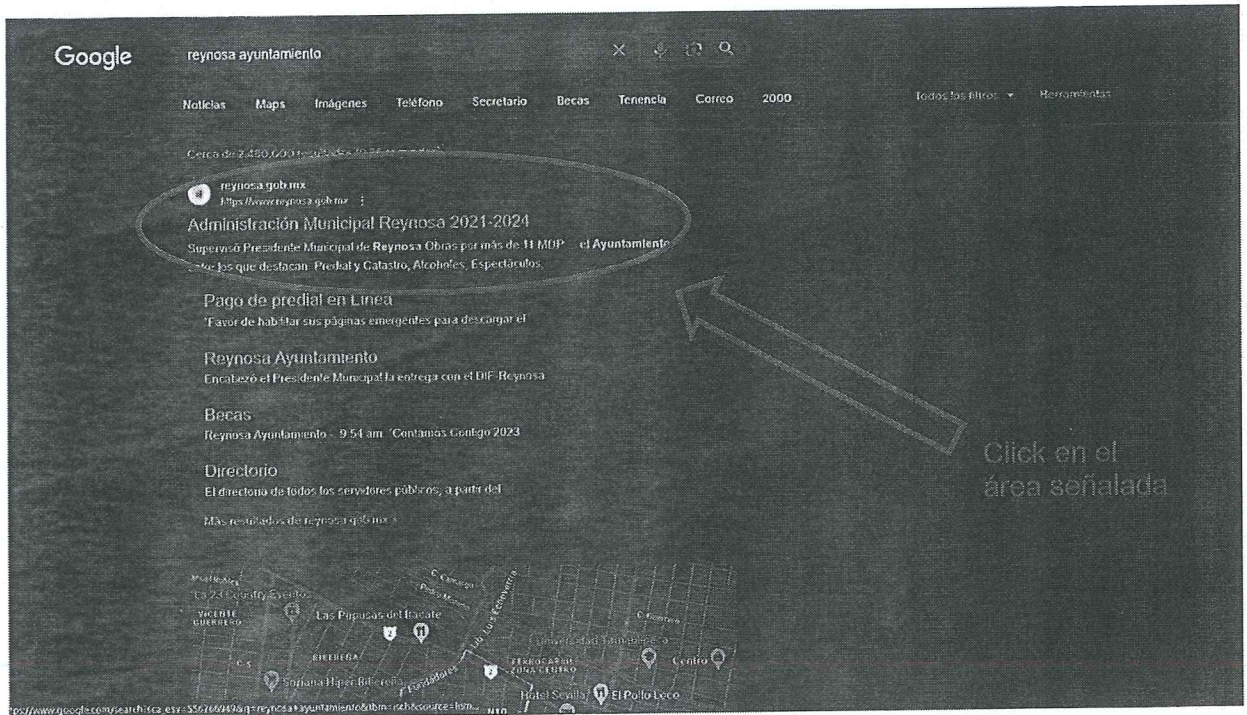 Google
reynosa ayuntamiento
Noticias Maps Imágenes Teléfono Secretario Becas Tenencia Correo 2000
Todos los filtros Herramientas
Cerca de 2,480,000
reynosa.gob.mx
https://www.reynosa.gob.mx
Administración Municipal Reynosa 2021-2024
Supervisó Presidente Municipal de Reynosa Obras por más de 11 MDP el Ayuntamiento
los que destacan: Predial y Catastro, Alcoholes, Espectáculos,
Pago de predial en Línea
"Favor de habilitar sus páginas emergentes para descargar el
Reynosa Ayuntamiento
Encabezó el Presidente Municipal la entrega con el DIF Reynosa
Becas
Reynosa Ayuntamiento - 9:54 am. "Contamos Contigo 2023
Directorio
El directorio de todos los servidores públicos, a partir del
Más resultados de reynosa.gob.mx »
Click en el
área señalada
C. Camargo
La 23 Country Eventos
Pedro
VICENTE
GUERRERO
Las Pupusas del Itacate
Lib. Luis Echeverría
Universidad Tamaulipeca
RIBEREÑA
FERROCARRIL
ZONA CENTRO
Centro
Soriana Híper Ribereña
Fundadores
Hotel Sevilla
El Pollo Loco